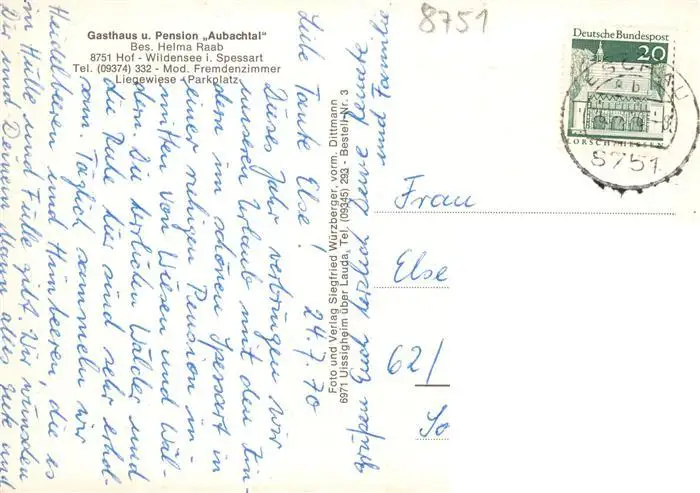 Gasthaus u. Pension „Aubachtal"
Bes. Helma Raab
8751 Hof - Wildensee i. Spessart
Tel. (09374) 332 - Mod. Fremdenzimmer
Liegewiese - Parkplatz
8751
Deutsche Bundespost
20
LORSCH/HESSEN
8751
24.7.70
Liebe Tante Else!
Dieses Jahr verbringen wir
unseren Urlaub mit den Kin-
dern im schönen Spessart in
einer ruhigen Pension in-
mitten von Wiesen und Wäl-
dern. Die herrlichen Wälder und
die Ruhe hier sind sehr erhol-
sam. Täglich sammeln wir
Heidelbeeren und Himbeeren, die es
in Hülle und Fülle gibt. Wir wünschen
Dir und Deinem Mann alles Gute und
grüßen Euch herzlich Deine Renate
und Familie.
Foto und Verlag Siegfried Würzberger, vorm. Dittmann
6971 Uissigheim über Lauda, Tel. (09345) 293 - Bestell-Nr. 3
Frau
Else
62/
So